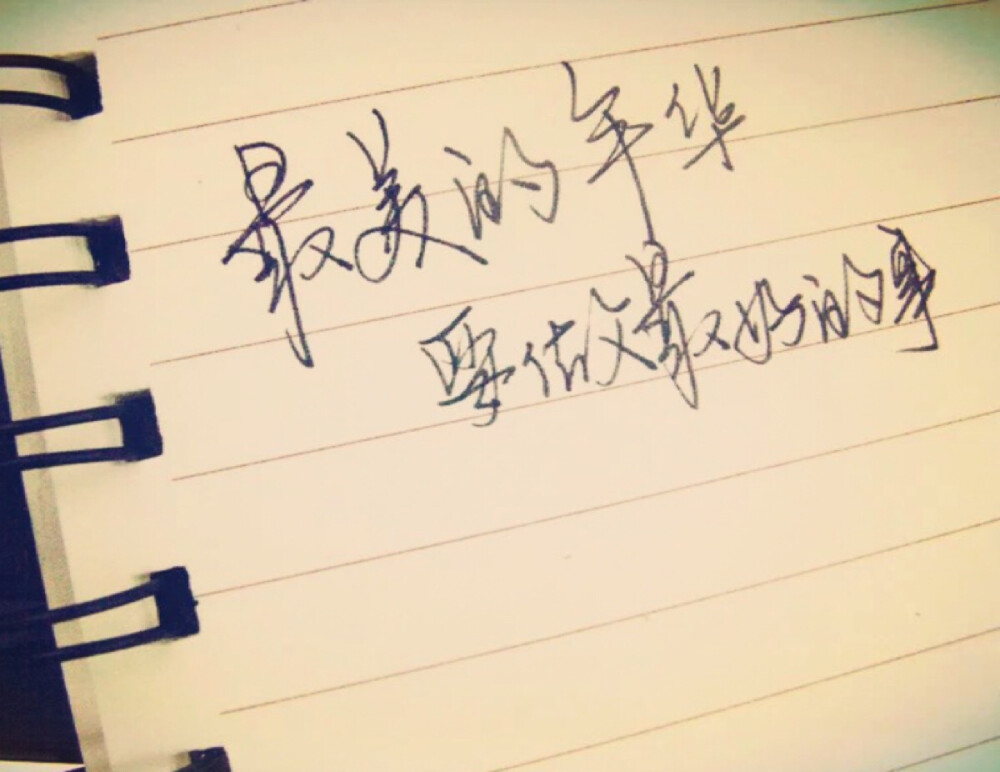 最美的年华
要做最好的事